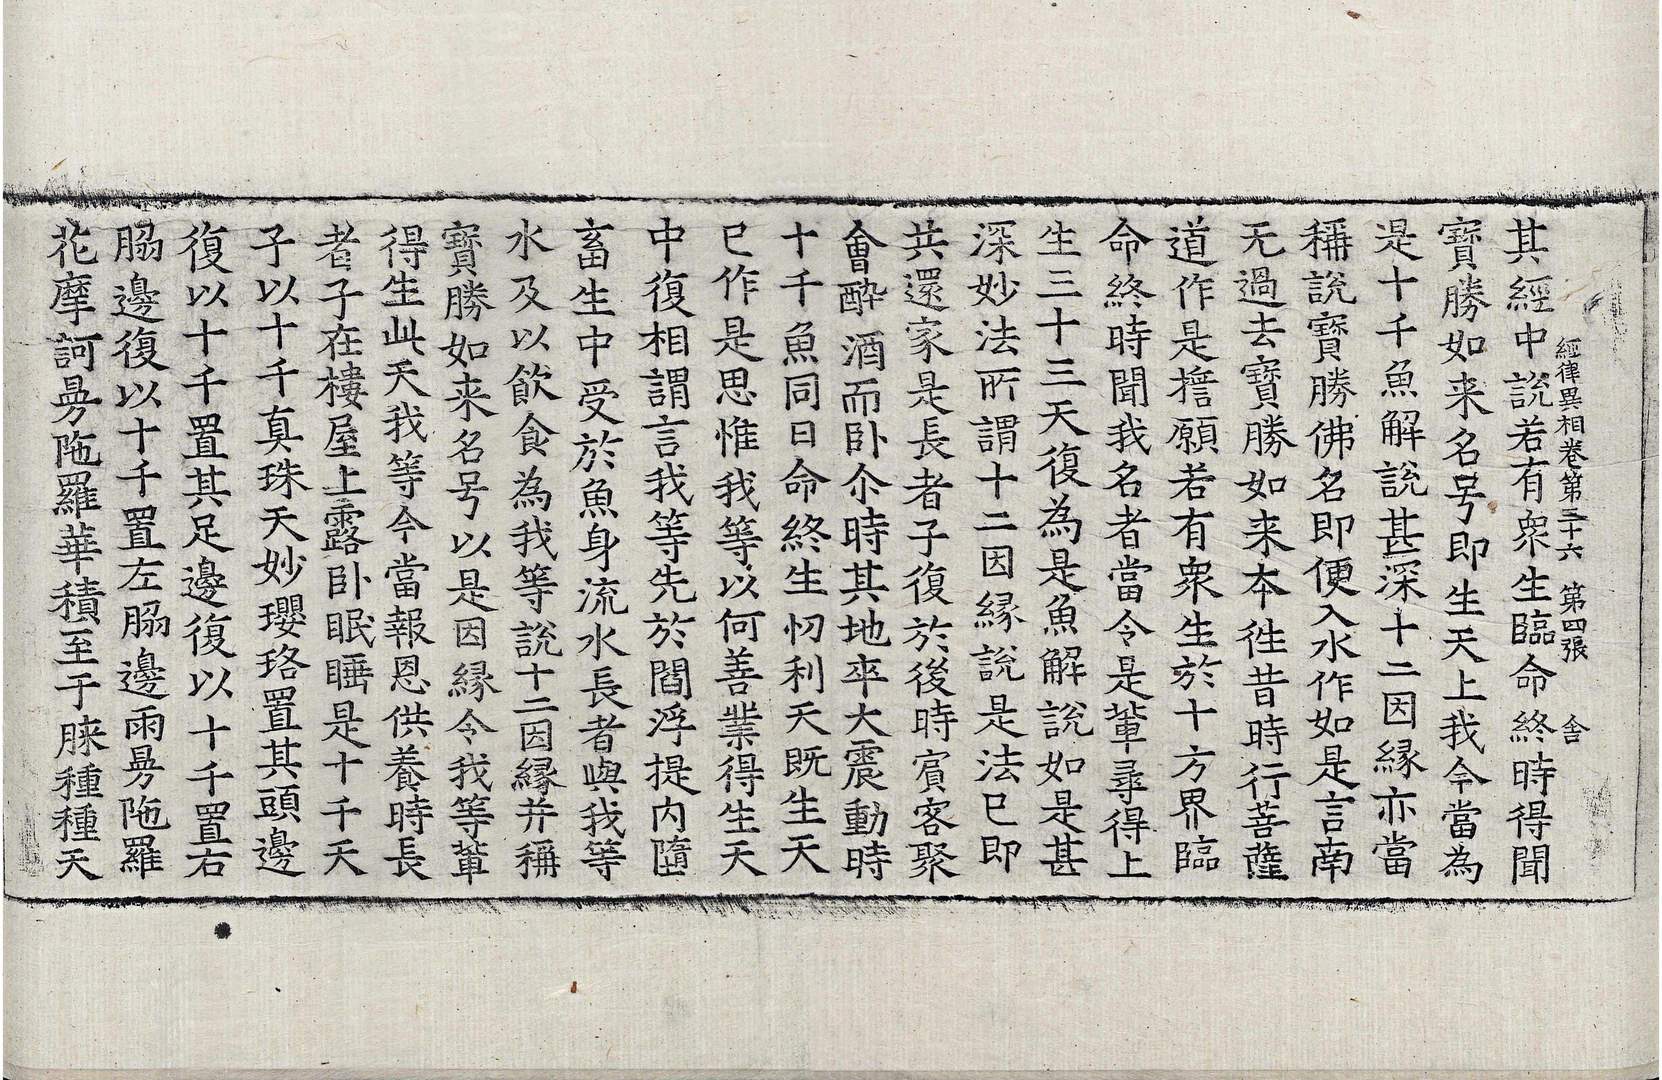 經律異相卷第三十六 第四張 舍
其經中說若有衆生臨命終時得聞
寶勝如来名号即生天上我今當為
是十千魚解說甚深十二因縁亦當
稱說寶勝佛名即便入水作如是言南
无過去寶勝如来本徃昔時行菩薩
道作是擔願若有衆生於十方界臨
命終時聞我名者當令是輩尋得上
生三十三天復為是魚解說如是甚
深妙法所謂十二因縁說是法已即
共還家是長者子復於後時賔客聚
會醉酒而卧尒時其地卒大震動時
十千魚同日命終生忉利天既生天
已作是思惟我等以何善業得生天
中復相謂言我等先於閻浮提内墮
畜生中受於魚身流水長者與我等
水及以飲食為我等說十二因縁并稱
寶勝如来名号以是因縁令我等輩
得生此天我等今當報恩供養時長
者子在樓屋上露卧眠睡是十千天
子以十千真珠天妙瓔珞置其頭邊
復以十千置其足邊復以十千置右
脇邊復以十千置左脇邊雨曼陁羅
花摩訶曼陁羅華積至于膝種種天